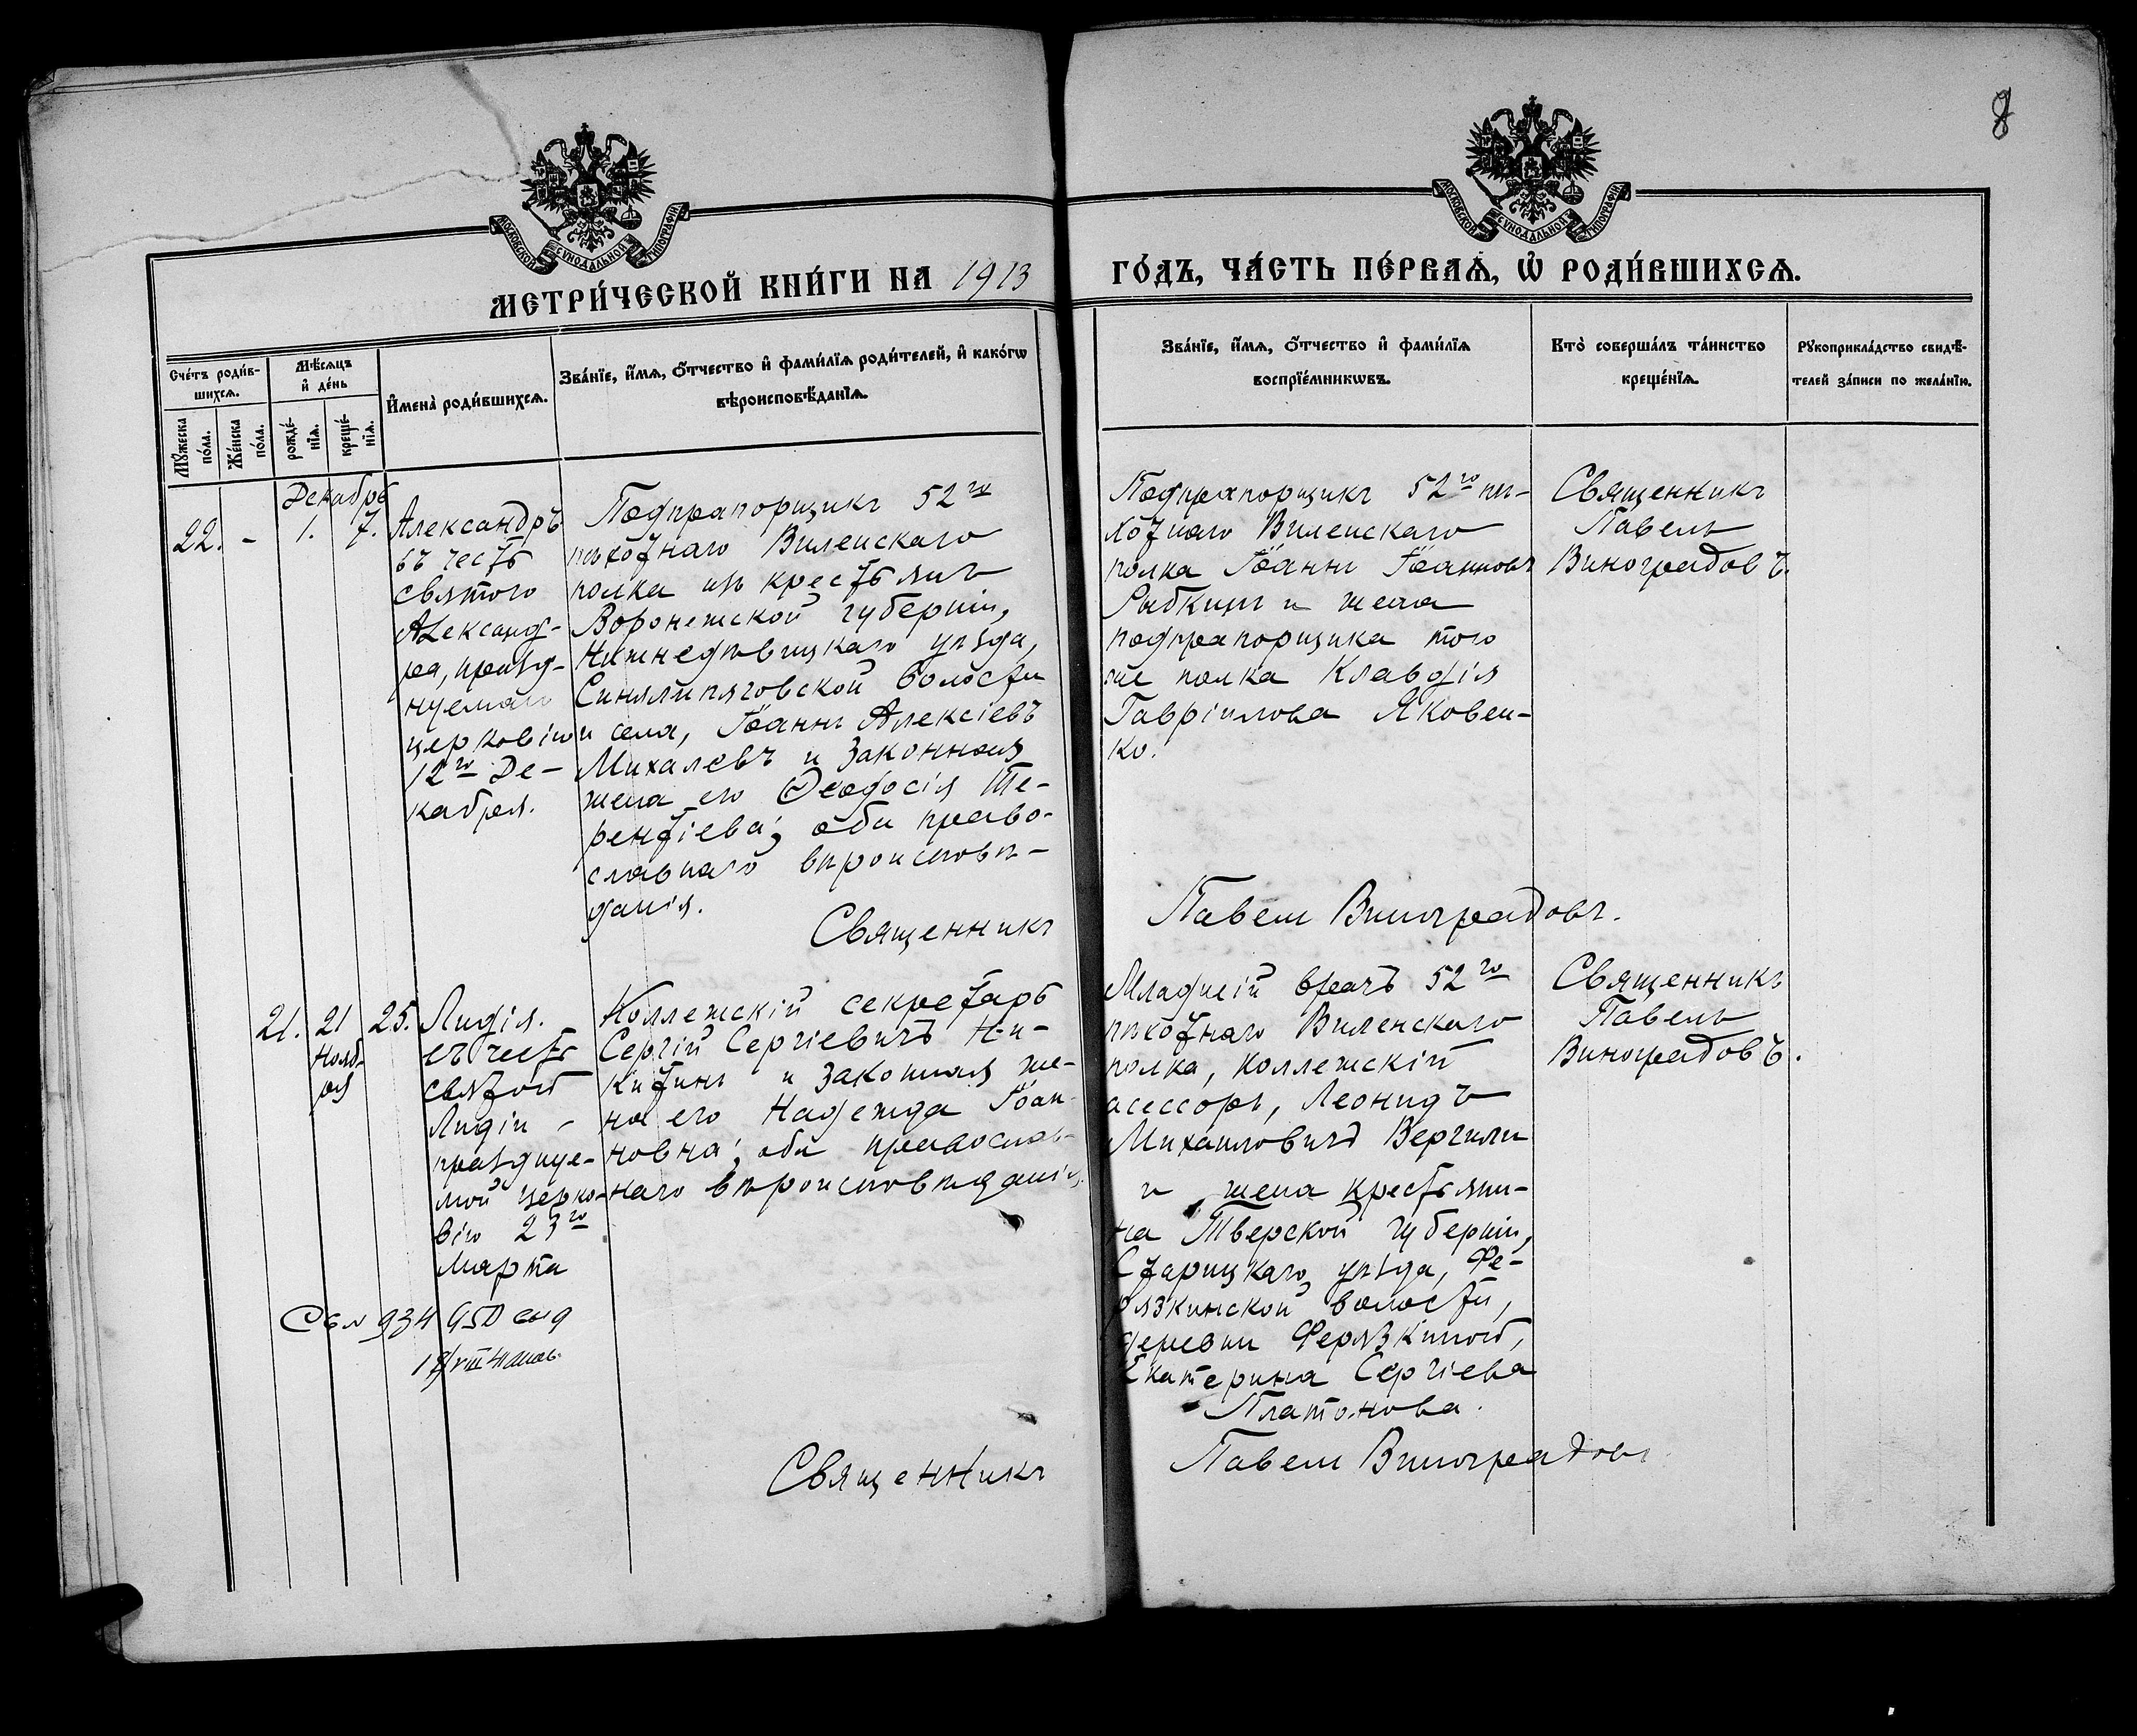 8
МОСКОВСКОЙ СѴНОДАЛЬНОЙ ТИПОГРАФІИ
МОСКОВСКОЙ СѴНОДАЛЬНОЙ ТИПОГРАФІИ
МЕТРИ́ЧЕСКОЙ КНИ́ГИ НА 1913
ГО́ДЪ, ЧА́СТЬ ПЕ́РВАѦ, Ѡ҆ РОДИ́ВШИХСѦ.
Сче́тъ роди́в-
шихсѧ.
Мꙋ́жеска
по́ла.
Же́нска
по́ла.
Мѣ́сѧцъ
и҆ де́нь
рожде́-
нїѧ.
креще́-
нїѧ.
И҆мена̀ роди́вшихсѧ.
Зва́нїе, и҆́мѧ, ѻ҆́тчество и҆ фами́лїѧ роди́телей, и҆ како́гѡ
вѣроисповѣ́данїѧ.
Зва́нїе, и҆́мѧ, ѻ҆́тчество и҆ фами́лїѧ
воспрїе́мникѡвъ.
Кто̀ соверша́лъ та́инство
креще́нїѧ.
Рꙋкоприкла́дство свидѣ́-
телей за́писи по жела́нїю.
Декабрь
22. - 1. 7.
Александръ
въ честь
святого
Александ-
ра, празд-
нуемаго
церковію
12го Де-
кабря.
Подпрапорщикъ 52го
пѣхотнаго Виленскаго
полка изъ крестьянъ
Воронежской губерніи,
Нижнедѣвицкаго уѣзда,
Синялипяговской волости
и села, Іоаннъ Алексіевъ
Михалевъ и законная
жена его Ѳеодосія Те-
рентіева; оба право-
славнаго вѣроисповѣ-
данія.
Священникъ
Подпрапорщикъ 52го пѣ-
хотнаго Виленскаго
полка Іоаннъ Іоанновъ
Рыбкинъ и жена
подпрапорщика того
же полка Клавдія
Гавріилова Яковен-
ко.
Священникъ
Павелъ
Виноградовъ.
Павелъ Виноградовъ.
21. 21 25.
Нояб-
ря
Лидія.
въ честь
святой
Лидіи -
празднуе-
мой церко-
вію 23го
марта
Коллежскій секретарь
Сергій Сергіевичъ Ни-
китинъ и законная же-
на его Надежда Іоан-
новна; оба православ-
наго вѣроисповѣданія.
934 950
18/VIII
Священникъ
Младшій врачъ 52го
пѣхотнаго Виленскаго
полка, коллежскій
асессоръ, Леонидъ
Михаиловичъ Вергили
и жена крестьяни-
на Тверской губерніи,
Старицкаго уѣзда, Фе-
рязкинской волости,
деревни Ферязкиной,
Екатерина Сергіева
Платонова.
Священникъ
Павелъ
Виноградовъ.
Павелъ Виноградовъ